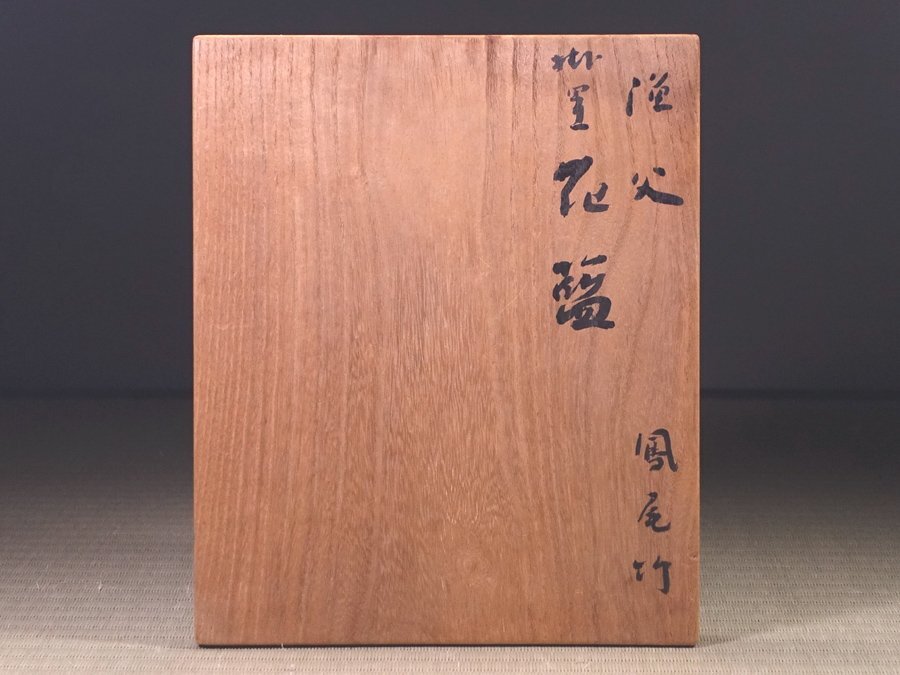 漁父 鳳尾竹
掛置花籃